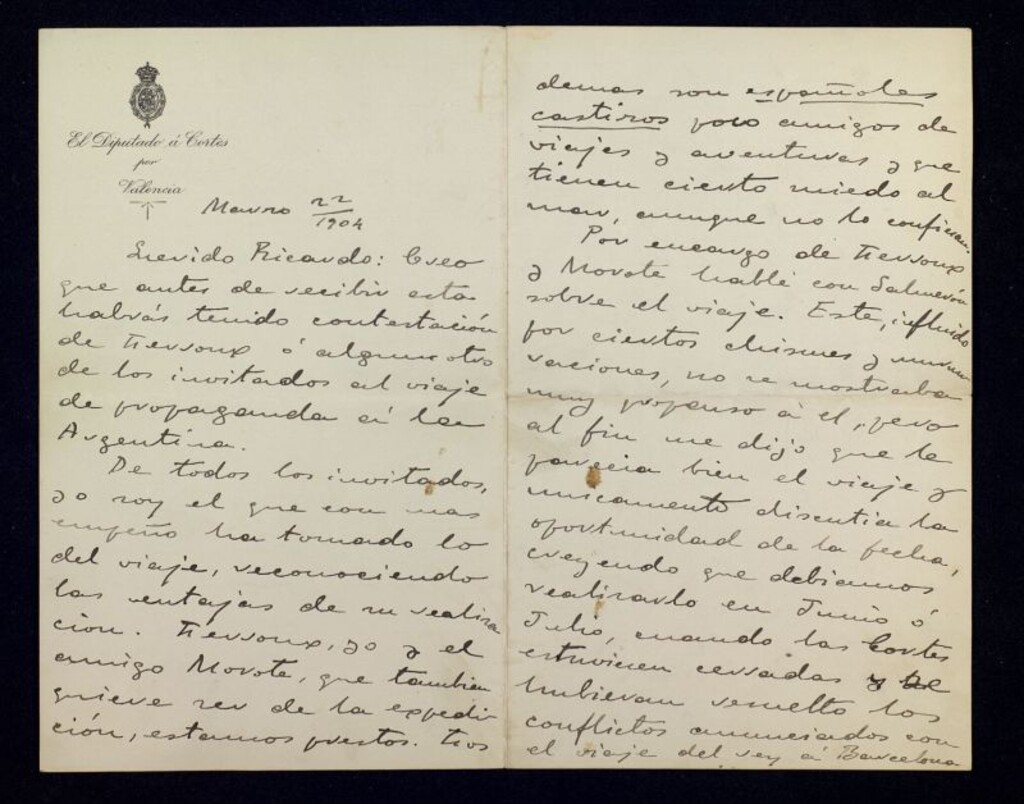 El Diputado á Cortes
por
Valencia
Marzo 22/1904
Querido Ricardo: Creo
que antes de recibir esta
habrás tenido contestación
de Herroux ó algun otro
de los invitados al viaje
de propaganda á la
Argentina.
De todos los invitados,
yo soy el que con mas
empeño ha tomado lo
del viaje, reconociendo
las ventajas de su realiza
ción. Herroux, yo y el
amigo Morote, que tambien
quiere ser de la expedi
ción, estamos prestos. Los
demas son españoles
castizos poco amigos de
viajes y aventuras y que
tienen cierto miedo al
mar, aunque no lo confiesan.
Por encargo de Herroux
y Morote hablé con Salmerón
sobre el viaje. Este, influido
por ciertos chismes y murmu
raciones, no se mostraba
muy propenso á el, pero
al fin me dijo que le
parecia bien el viaje y
unicamente discutia la
oportunidad de la fecha,
creyendo que debiamos
realizarlo en Junio ó
Julio, cuando las Cortes
estuviesen cerradas y se
hubieran resuelto los
conflictos anunciados con
el viaje del rey á Barcelona